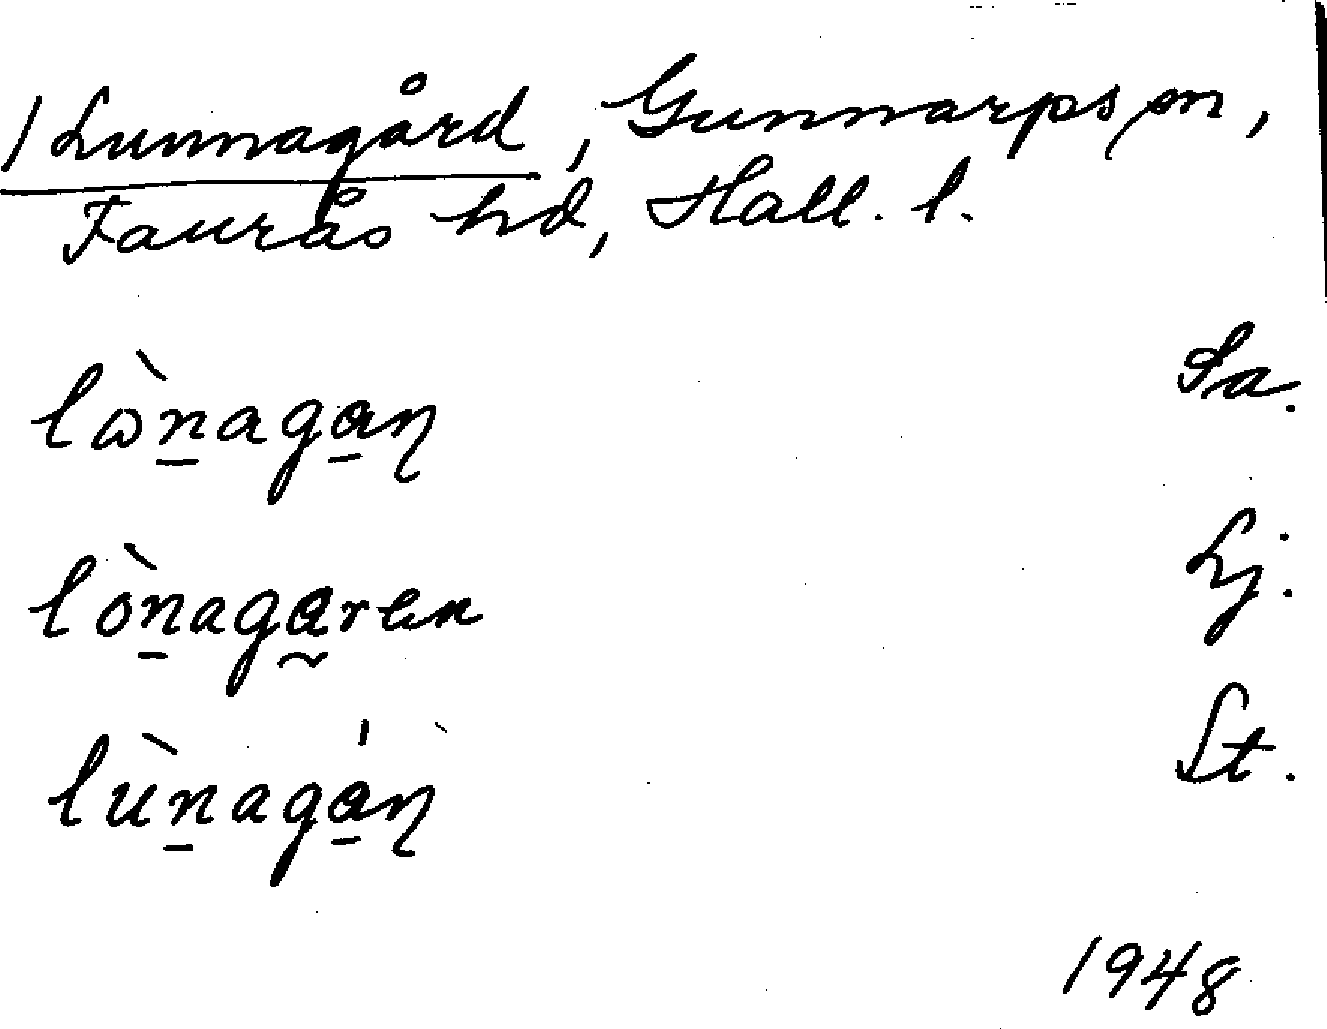 / Lunnagård, Gunnarps sn,
Faurås hd, Hall. l.
lὼn̲aga̲ꞃ Sa.
lòn̲aga̰ren Lj.
lùn̲agá̲ꞃ St.
1948